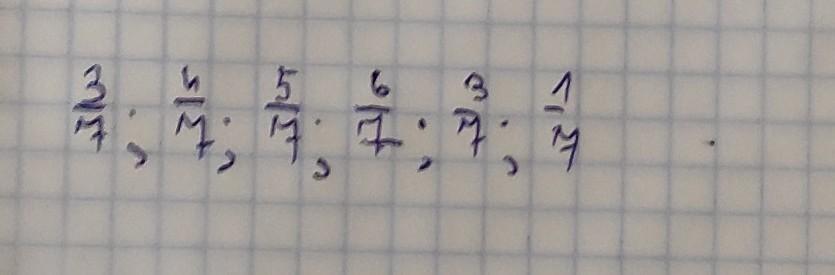 3/7; 4/7; 5/7; 6/7; 3/7; 1/7